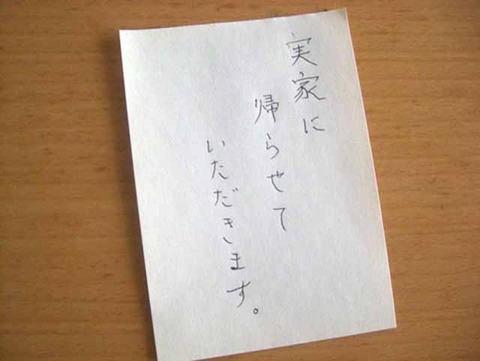 実家に
帰らせて
いただきます。